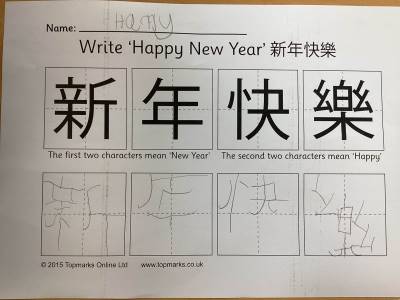 Name: Harry
Write 'Happy New Year' 新年快樂
新 年 快 樂
The first two characters mean 'New Year' The second two characters mean 'Happy'
© 2015 Topmarks Online Ltd www.topmarks.co.uk